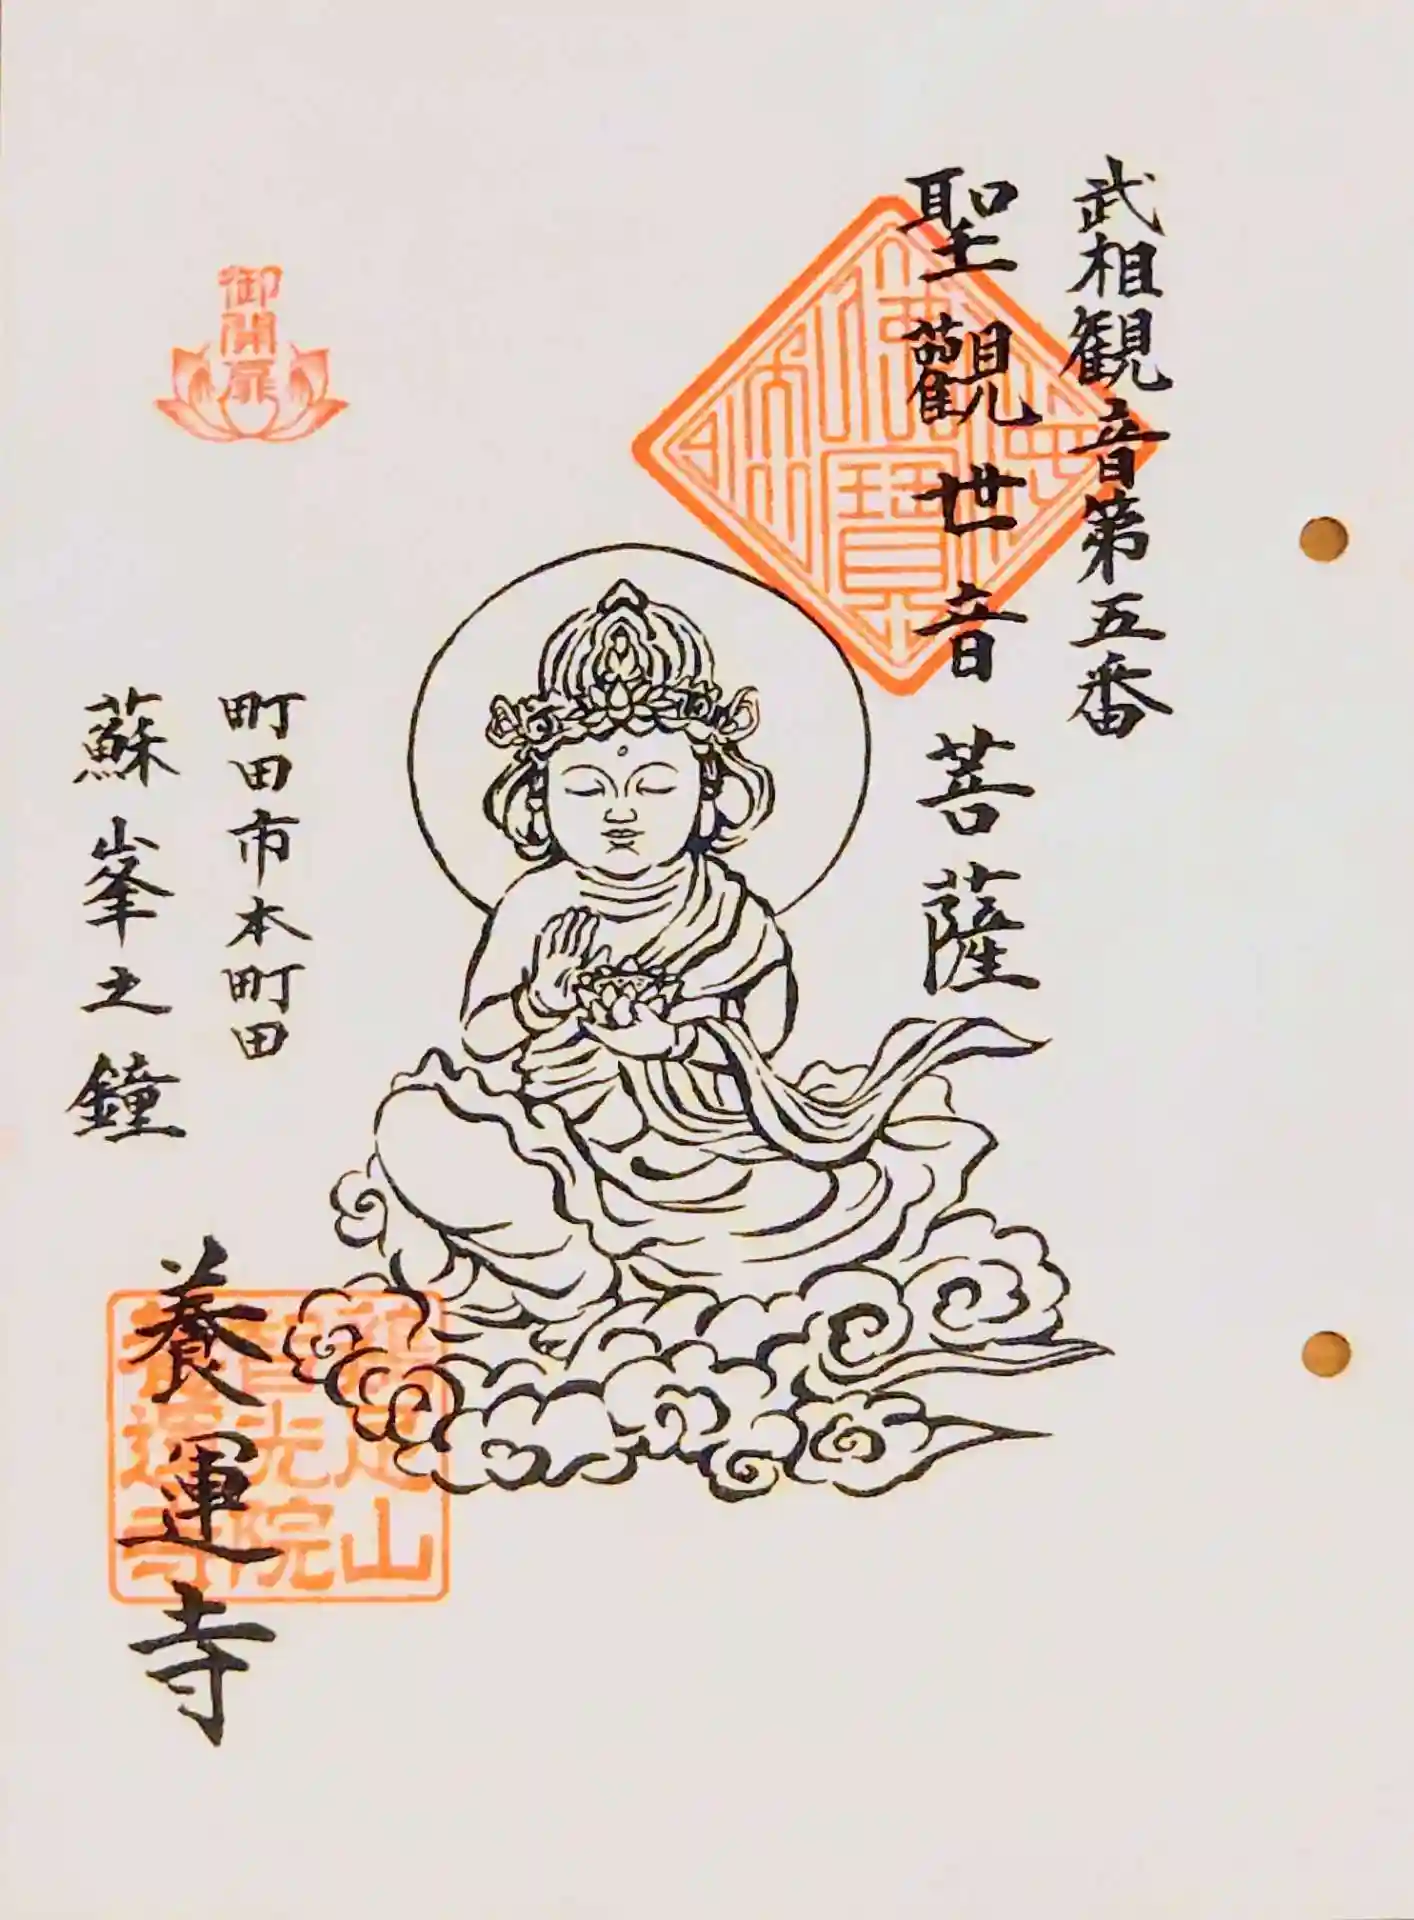 武相観音第五番
聖觀世音菩薩
御開扉
町田市本町田
蘇峯之鐘
養運寺
足山
光院